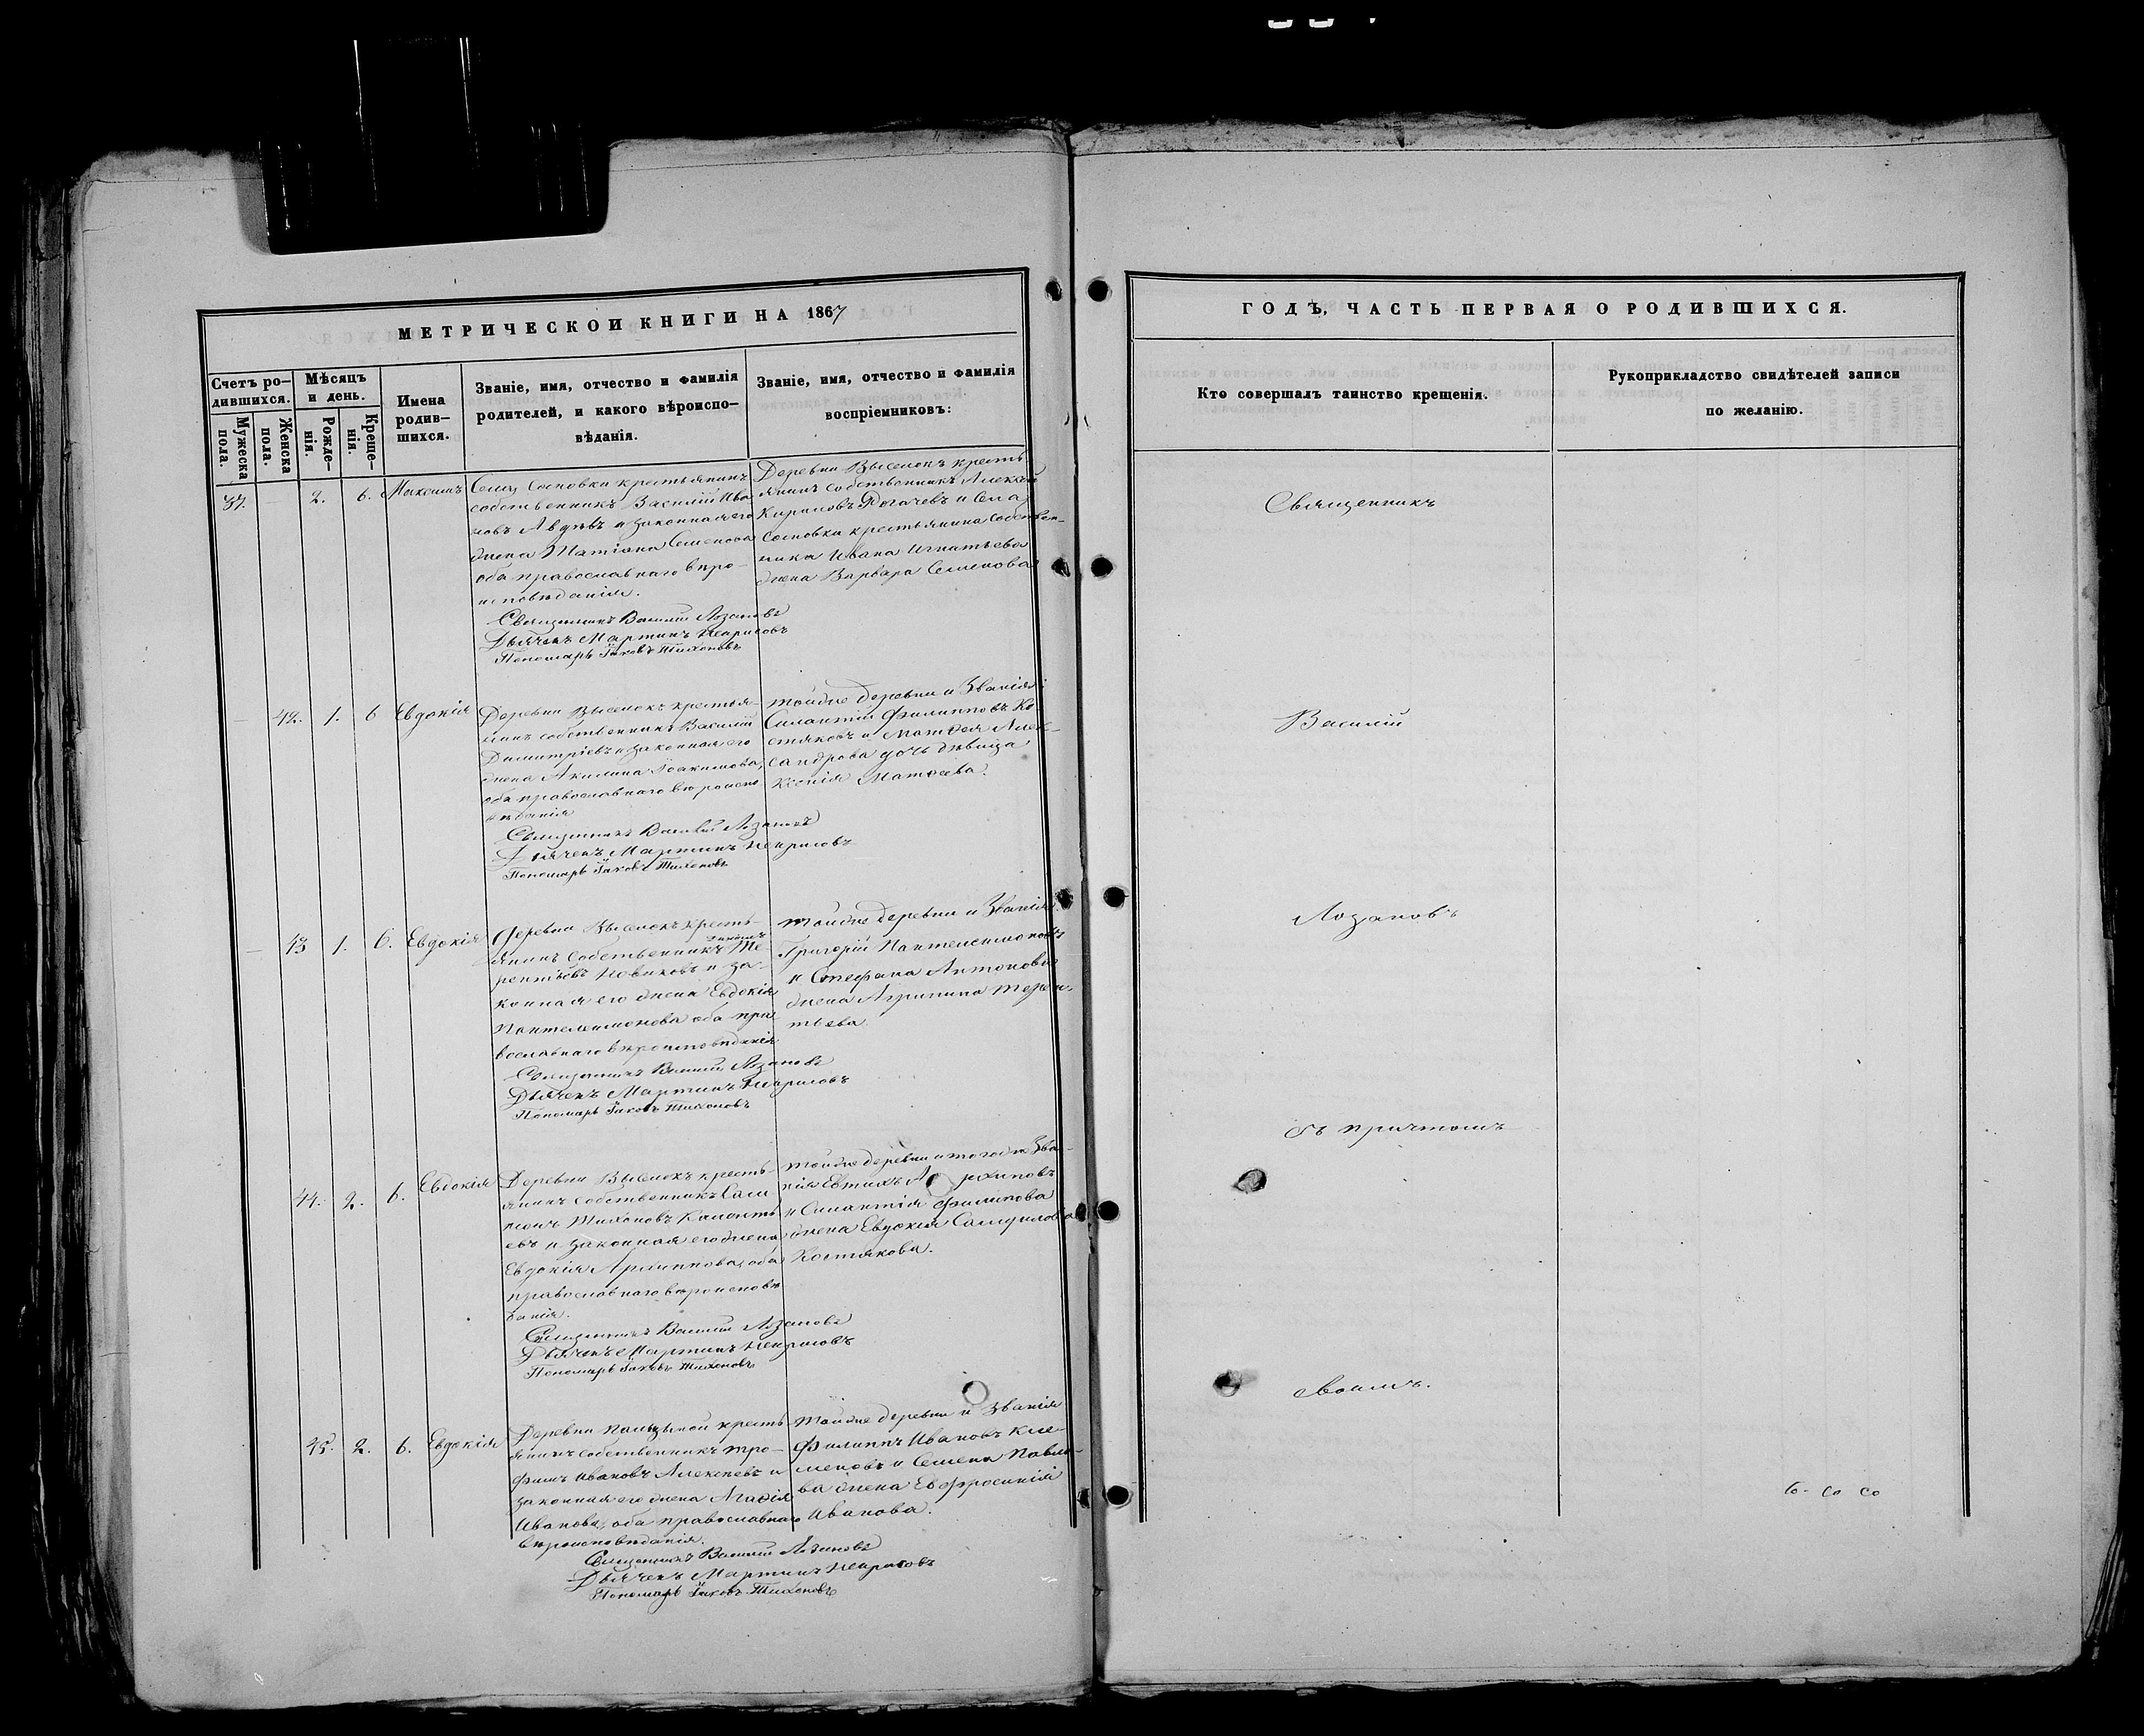 МЕТРИЧЕСКОЙ КНИГИ НА 1867
Счетъ ро-
дившихся.
Мужеска
пола.
Женска
пола.
Мѣсяцъ
и день.
Рожде-
нія.
Креще-
нія.
Имена
родив-
шихся.
Званіе, имя, отчество и фамилія
родителей, и какого вѣроиспо-
вѣданія.
Званіе, имя, отчество и фамилія
воспріемниковъ:
37.
2.
6.
Максимъ
Села Сосновки крестьянинъ
собственникъ Василій Ива
новъ Авдѣевъ и законная его
жена Татіана Семенова
оба православнаго вѣро-
исповѣданія.
Священникъ Василій Лозановъ
Дьячекъ Мартинъ Некрасовъ
Пономарь Іаковъ Тихоновъ
Деревни Выселокъ кресть
янинъ собственникъ Алексѣй
Кириловъ Рогачевъ и Села
Сосновки крестьянина собствен-
ника Ивана Игнатьева
жена Варвара Семенова
42.
1.
6
Евдокія
Деревни Выселокъ крестья-
нинъ собственникъ Василій
Димитріевъ и законная его
жена Акилина Іоакимова,
оба православнаго вѣроиспо
вѣданія
Священникъ Василій Лозановъ
Дьячекъ Мартинъ Некрасовъ
Пономарь Іаковъ Тихоновъ
тойже деревни и званія
Силантій Филипповъ Ко
стяковъ и Матѳея Алек-
сандрова дочь дѣвица
Ксенія Матѳеева.
43
1.
6.
Евдокія
Деревни Выселокъ кресть-
янинъ собственникъ Те-
рентьевъ Новиковъ и за-
конная его жена Евдокія
Пантелеимонова оба пра
вославнаго вѣроисповѣданія
Священникъ Василій Лозановъ
Дьячекъ Мартинъ Некрасовъ
Пономарь Іаковъ Тихоновъ
тойже деревни и званія
Григорій Пантелеимоновъ
и Стефана Антонова
жена Агрипина Терен-
тьева
44.
2.
6.
Евдокія
Деревни Выселокъ кресть-
янинъ собственникъ
Тихоновъ
евъ и законная его жена
Евдокія Архиппова, оба
православнаго вѣроисповѣ
данія.
Священникъ Василій Лозановъ
Дьячекъ Мартинъ Некрасовъ
Пономарь Іаковъ Тихоновъ
тойже деревни и тогоже зва-
нія Евтихъ Архиповъ
и Силантія Филипова
жена Евдокія Самуилова
Костякова.
45.
2.
6.
Евдокія
Деревни кресть
янинъ собственникъ Тро-
фимъ Ивановъ Алексѣевъ и
законная его жена Агафія
Иванова, оба православнаго
вѣроисповѣданія.
Священникъ Василій Лозановъ
Дьячекъ Мартинъ Некрасовъ
Пономарь Іаковъ Тихоновъ
тойже деревни и званія
Филиппъ Ивановъ Кле-
меновъ и Семена Павло-
ва жена Евфросинія
Иванова.
ГОДЪ, ЧАСТЬ ПЕРВАЯ О РОДИВШИХСЯ.
Кто совершалъ таинство крещенія.
Рукоприкладство свидѣтелей записи
по желанію.
Священникъ
Василій
Лозановъ
съ причтомъ
своимъ.